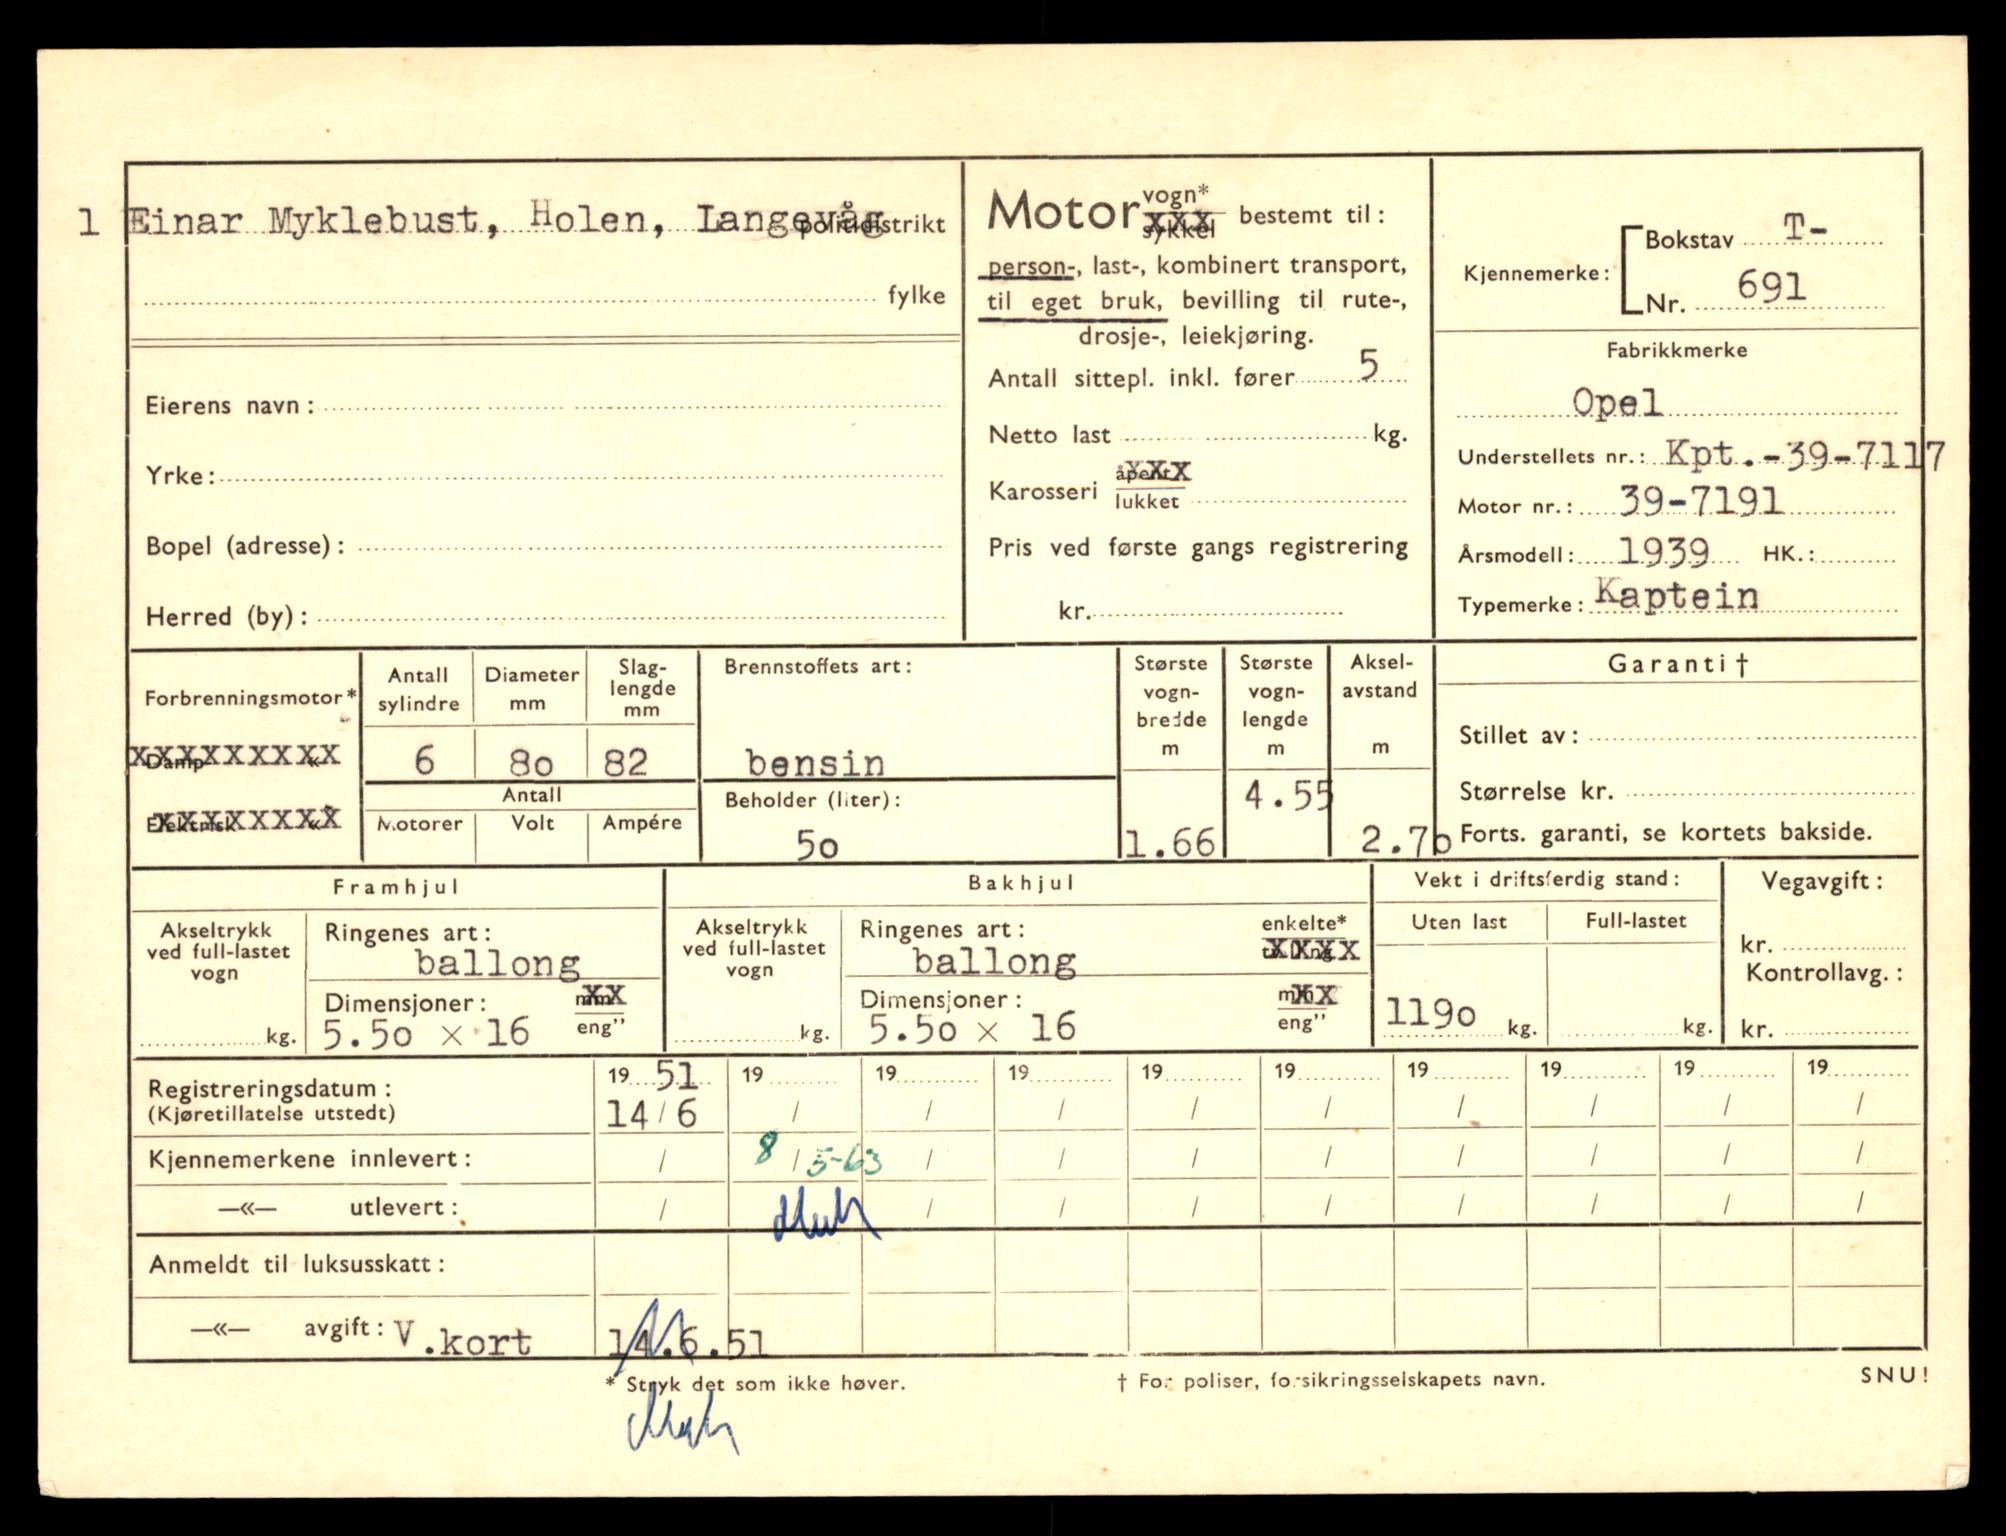 1 Einar Myklebust, Holen, Langevåg politidistrikt
fylke
Eierens navn:
Yrke:
Bopel (adresse):
Herred (by):
Motor vogn*
sykkel bestemt til:
person-, last-, kombinert transport,
til eget bruk, bevilling til rute-,
drosje-, leiekjøring.
Antall sittepl. inkl. fører 5
Netto last kg.
Karosseri åpent
lukket
Pris ved første gangs registrering
kr.
Kjennemerke: Bokstav T-
Nr. 691
Fabrikkmerke
Opel
Understellets nr.: Kpt.-39-7117
Motor nr.: 39-7191
Årsmodell: 1939 HK.:
Typemerke: Kaptein
Forbrenningsmotor*
Damp «
Elektrisk «
Antall sylindre
6
Diameter mm
80
Slag-
lengde
mm
82
Antall
Motorer Volt Ampére
Brennstoffets art:
bensin
Beholder (liter):
50
Største
vogn-
bredde
m
1.66
Største
vogn-
lengde
m
4.55
Aksel-
avstand
m
2.70
Garanti †
Stillet av:
Størrelse kr.
Forts. garanti, se kortets bakside.
Framhjul
Akseltrykk
ved full-lastet
vogn
kg.
Ringenes art:
ballong
Dimensjoner: mm
5.50 x 16 eng”
Bakhjul
Akseltrykk
ved full-lastet
vogn
kg.
Ringenes art: enkelte*
ballong tvilling
Dimensjoner: mm
5.50 x 16 eng”
Vekt i driftsferdig stand:
Uten last Full-lastet
1190 kg. kg.
Vegavgift:
kr.
Kontrollavg.:
kr.
Registreringsdatum: 19 51 19 19 19 19 19 19 19 19 19
(Kjøretillatelse utstedt) 14/6 / / / / / / / / /
Kjennemerkene innlevert: / 8/5-63 / / / / / / / /
—«— utlevert: / / / / / / / / /
Anmeldt til luksusskatt:
—«— avgift: V.kort 14.6.51
* Stryk det som ikke høver. † For poliser, forsikringsselskapets navn. SNU!